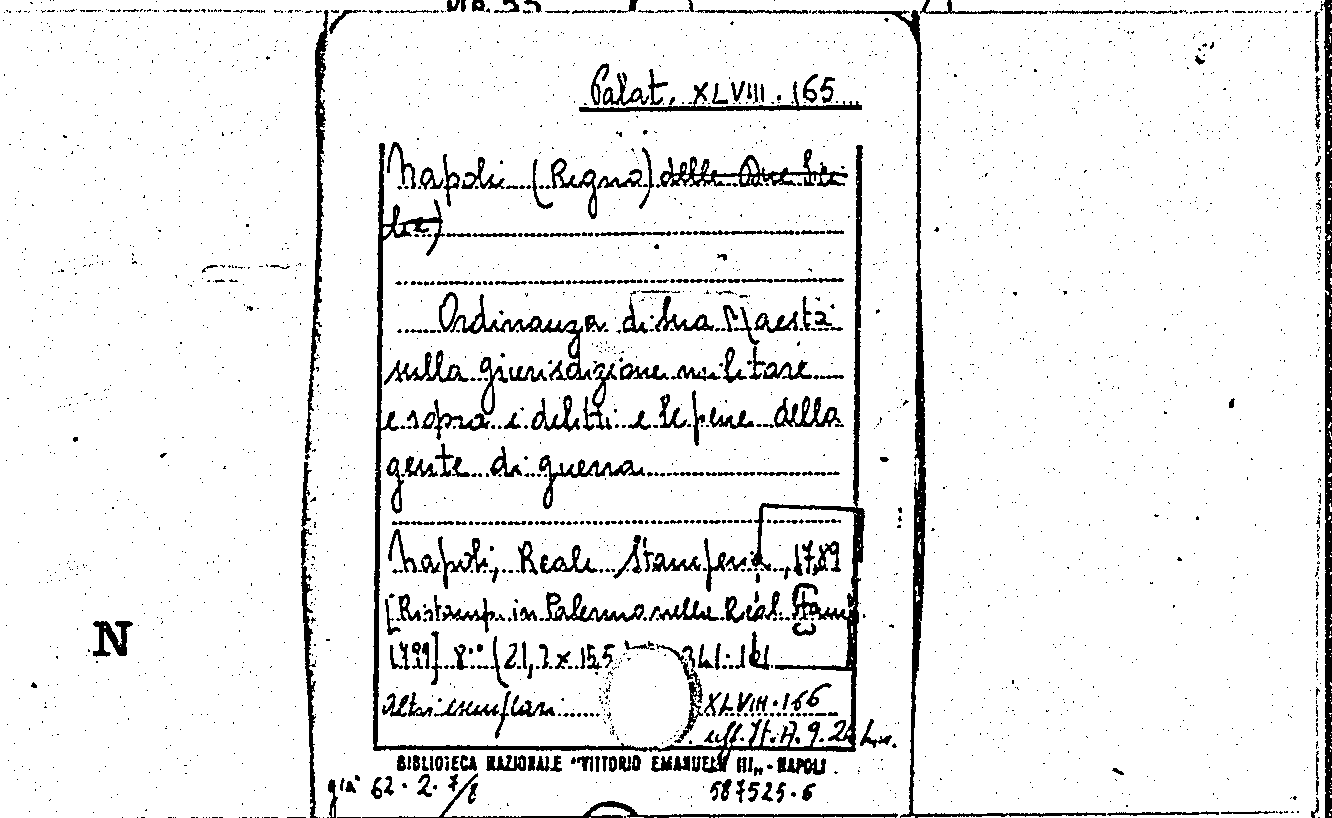 Palat. XLVIII. 165
Napoli (Regno) delle Due Sici
lie)
Ordinanza di Sua Maestà
sulla giurisdizione militare
e sopra i delitti e le pene della
gente di guerra
Napoli, Reale Stamperia, 1789
[Ristamp. in Palermo nella Real Stamp.
1799] 8°° (21,7 x 15,5
Altri esemplari XLVIII. 166
BIBLIOTECA NAZIONALE "VITTORIO EMANUELE III„ - NAPOLI
già 62. 2. 7/8 587525-6
N